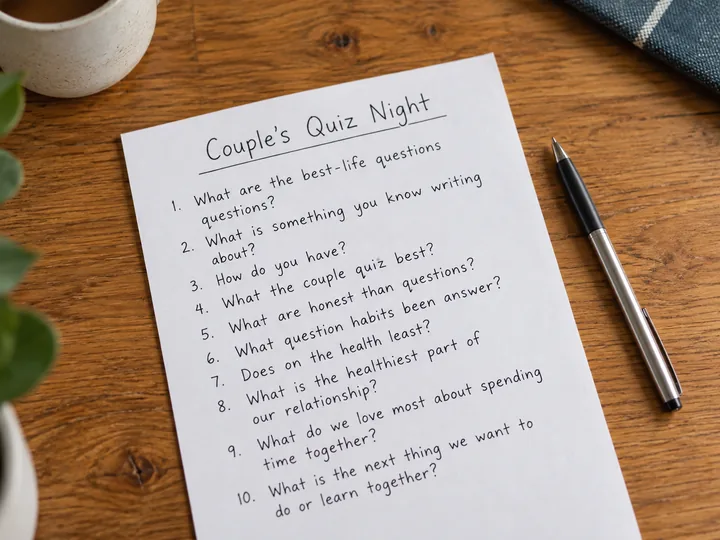 Couple's Quiz Night
1. What are the best-life questions
questions?
2. What is something you know writing
about?
3. How do you have?
4. What the couple quiz best?
5. What are honest than questions?
6. What question habits been answer?
7. Does on the health least?
8. What is the healthiest part of
our relationship?
9. What do we love most about spending
time together?
10. What is the next thing we want to
do or learn together?